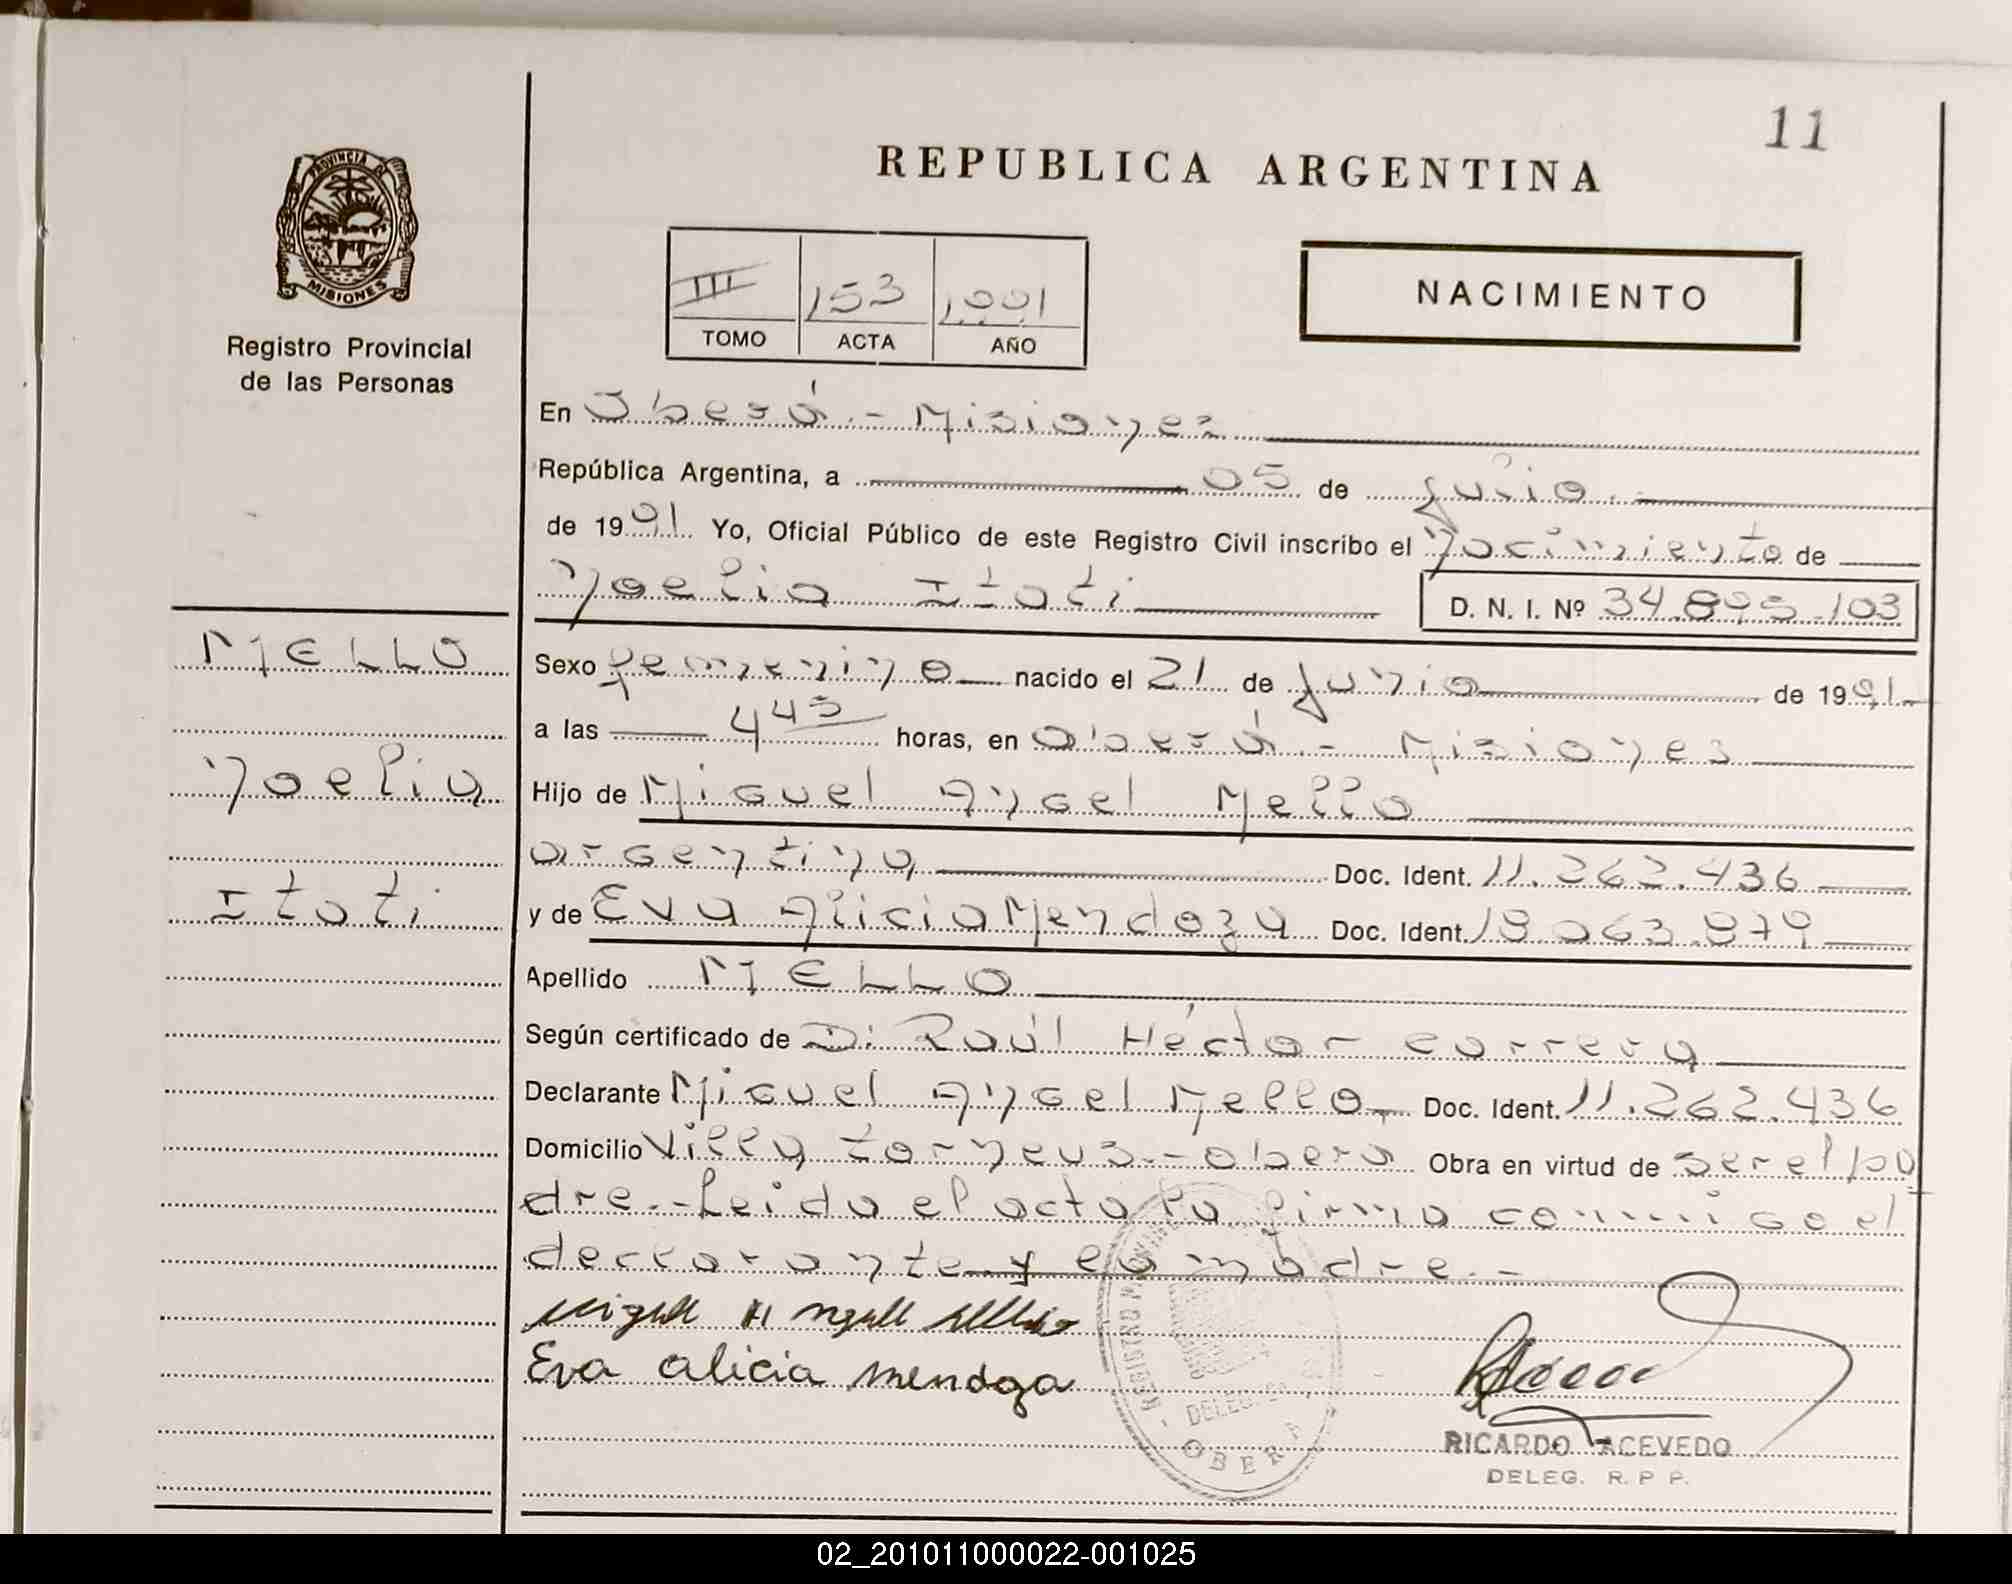 11
REPUBLICA ARGENTINA
PROVINCIA DE
MISIONES
Registro Provincial
de las Personas
III 153 1991
TOMO ACTA AÑO
NACIMIENTO
En Oberá.- Misiones
República Argentina, a 05 de julio.-
de 1991. Yo, Oficial Público de este Registro Civil inscribo el Nacimiento de
Noelia Itati
D. N. I. Nº 34.895.103
MELLO
Noelia
Itati
Sexo femenino nacido el 21 de junio de 1991.-
a las 4 45 horas, en Oberá.- Misiones
Hijo de Miguel Angel Mello
argentino Doc. Ident. 11.262.436
y de Eva Alicia Mendoza Doc. Ident. 18.063.879
Apellido MELLO
Según certificado de Dr Raúl Héctor Correra
Declarante Miguel Angel Mello Doc. Ident. 11.262.436
Domicilio Villa torneus.- Obera Obra en virtud de ser el pa
dre.- Leida el acta la firma conmigo el
declarante y la madre.-
Miguel Angel Mello
Eva alicia mendoza
REGISTRO PROVINCIAL
DELEG.
OBERA
RICARDO ACEVEDO
DELEG. R. P. P.
02_201011000022-001025